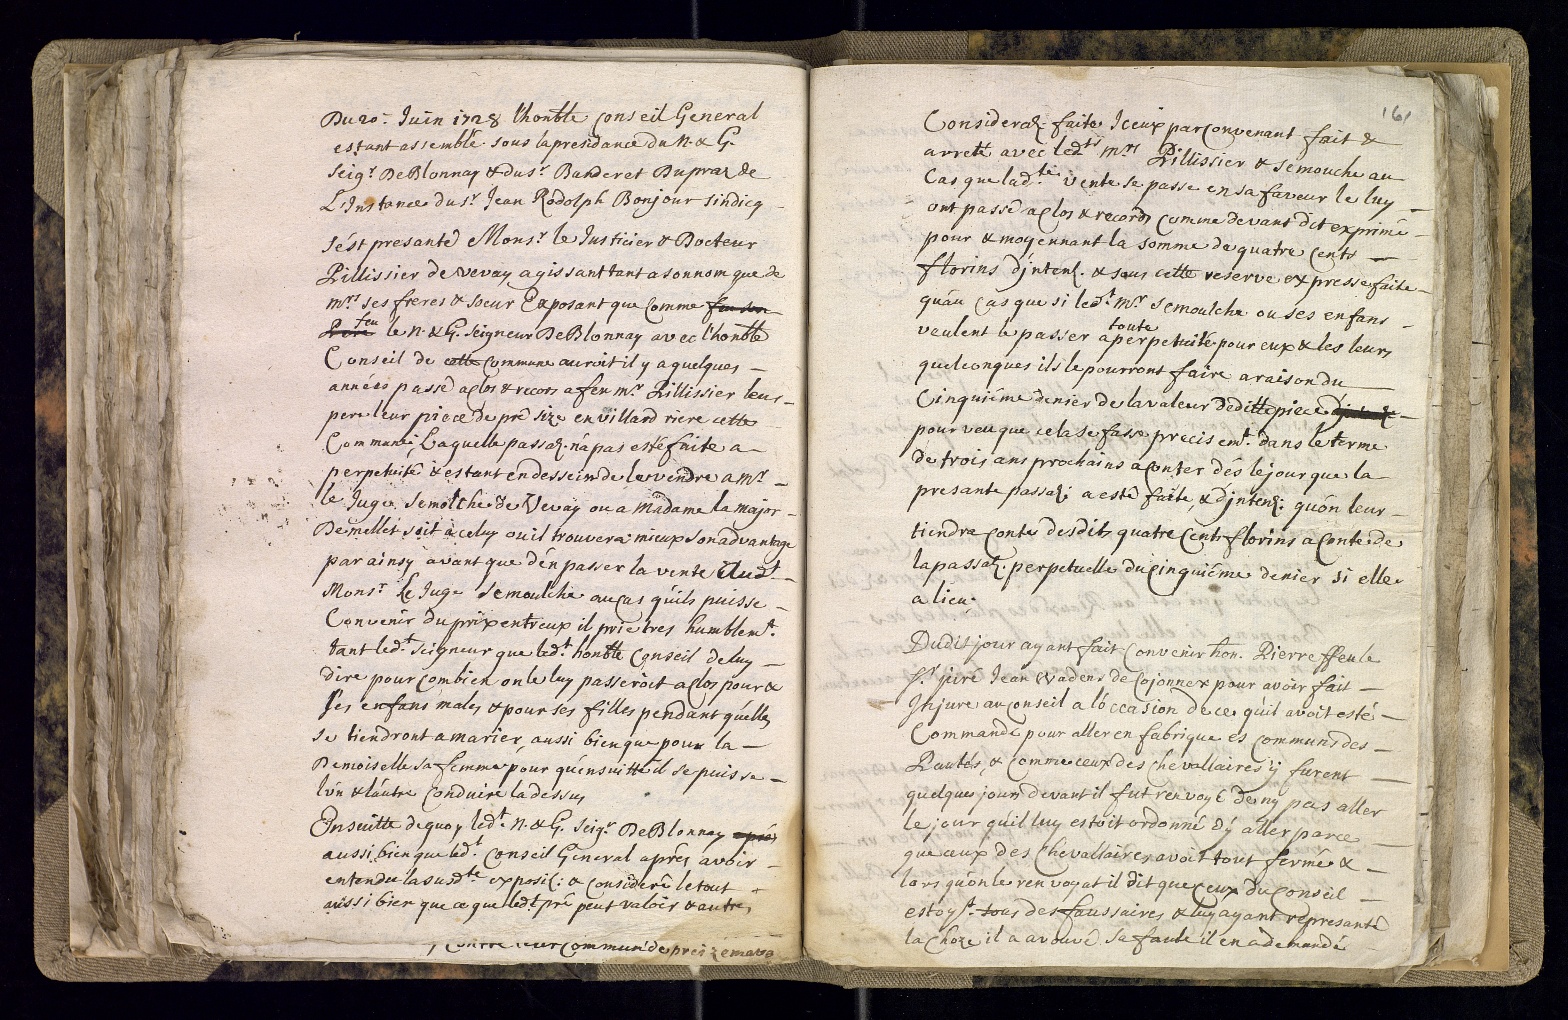 Du 20.e Juin 1728 l'honble Conseil General
estant assemblé sous la presidance du N. & G.
Seigr. DeBlonnay & du sr. Banderet Dupraz de
L'Instance du sr. Jean Rodolph Bonjour sindicq
sést presanté Monsr. le Justicier & Docteur
Pillissier de vevay, agissant tant a son nom que de
mrs. ses freres & soeur Exposant que Comme feu son
Pere feu le N. & G. Seigneur DeBlonnay avec l'honble
Conseil de cette Commune auroit il y a quelques
années passé a clos & recors a feu mr. Pillissier leur
pere leur piece de pré size en villard riere cette
Communé, Laquelle passaõ. na pas esté faite a
perpetuité & estant en dessein de la vendre a mr.
le Juge Semolche de Vevay ou a Madame la major
Demellet soit à celuy ou il trouvera mieux son advantage
par ainsy avant que d'en passer la vente Audt.
Monsr. Le Juge Semoulche au cas qu'ils puisse
Convenir du prix entreux il prie tres humblemt.
tant ledt. Seigneur que ledt. honble Conseil de luy
dire pour combien on le luy passeroit a clos pour &
ses enfans males & pour ses filles pendant quelles
se tiendront a marier, aussi bien que pour la
Demoiselle sa femme pour quensuitte il se puisse
lún & láutre Conduire la dessus
Ensuitte de quoy ledt. N. & G. Seigr. DeBlonnay aprés
aussi bien que ledt. Conseil General aprés avoir
entendu la susdte. exposiõ. & Consideré le tout
aussi bien que ce que ledt. pré peut valoir & autre,
Contre leur Commun de prez
161
Consideraõ. faite Iceux par Convenant fait &
arreté avec ledts. mrs. Pillissier & Semouche au
Cas que ladte. vente se passe en sa faveur le luy
ont passé a clos & record Comme devant dit exprimé
pour & moyennant la somme de quatre Cents
florins d'intenõ. & sous cette reserve expresse faite
quáu cas que si ledt. Mr. Semoulche ou ses enfans
veulent le passer a toute perpetuité pour eux & les leurs
quelconques ils le pourront faire a raison du
Cinquiéme denier de la valeur de ditte piece
pour veu que cela se fasse precisemt. dans le terme
de trois ans prochains a conter dés le jour que la
presante passaõ. a esté faite, & d'intenõ. quón leur
tiendra Conte desdits quatre Cents florins a Conte de
la passaõ. perpetuelle du Cinquiéme denier si elle
a lieu.
Dudit jour ayant fait Convenir hon. Pierre ffeu le
Sr. juré Jean Wadens de Cojonnex pour avoir fait
Injure au Conseil a l'óccasion de ce qu'il avoit esté
Commandé pour aller en fabrique es communs des
Pautés, & Comme ceux des Chevallaires y furent
quelques jours devant il fut renvoyé de ny pas aller
le jour quil luy estoit ordonné d'y aller parce
que ceux des Chevallaires avoit tout fermé &
lors quón le renvoyat il dit que Ceux du Conseil
estoyt. tous des faussaires & luy ayant represanté
la Choze il a avoüé sa faute il en a demandé